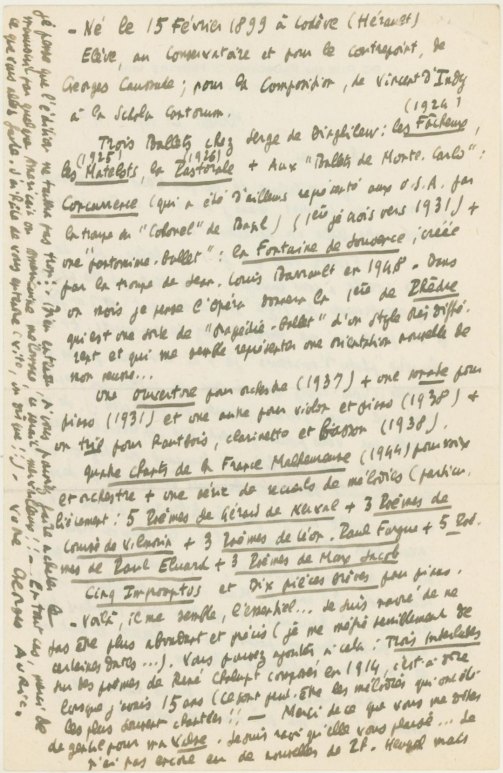 - Né le 15 Février 1899 à Lodève (Hérault)
Elève, au Conservatoire et pour le contrepoint, de
Georges Caussade ; pour la Composition, de Vincent D'Indy
à la Schola Cantorum.
(1924)
Trois Ballets chez Serge de Diaghilew : les Fâcheux,
(1925) (1926)
les Matelots, la Pastorale + Aux "Ballets de Monte-Carlo" :
Concurrence (qui a été d'ailleurs représenté aux U.S.A. par
la troupe du "Colonel" de Basil) (1ère je crois vers 1931) +
une "pantomime-ballet" : la Fontaine de Jouvence, créée
par la troupe de Jean-Louis Barrault en 1948 - Dans
un mois je pense l'Opéra donnera la 1ère de Phèdre
qui est une sorte de "tragédie-ballet" d'un style très diffé-
rent et qui me semble représenter une orientation nouvelle de
mon œuvre...
Une ouverture pour orchestre (1937) + une sonate pour
piano (1931) et une autre pour violon et piano (1938) +
un trio pour hautbois, clarinette et basson (1938).
quatre chants de la France Malheureuse (1944) pour voix
et orchestre + une série de recueils de mélodies (particu-
lièrement : 5 Poèmes de Gérard de Nerval + 3 Poèmes de
Louise de Vilmorin + 3 Poèmes de Léon-Paul Fargue + 5 Poè-
mes de Paul Eluard + 3 Poèmes de Max Jacob
Cinq Impromptus et Dix pièces brèves pour piano.
- Voilà, il me semble, l'essentiel... Je suis navré de ne
pas être plus abondant et précis (je me méfie pareillement de
certaines dates...). Vous pouvez ajouter à cela : Trois Interludes
sur des poèmes de René Chalupt composés en 1914, c'est à dire
lorsque j'avais 15 ans (ce sont peut-être les mélodies qui ont été
les plus souvent chantées !! - Merci de ce que vous me dites
de gentil pour ma Valse. Je suis ravi qu'elle vous plaise... Je
n'ai pas encore eu de nouvelles de Mr. Heugel mais
je pense que l'édition ne tardera pas trop ! Bien entendu, si vous pouvez faire acheter le
manuscrit par quelque musicien ou américaine mélomane, ce serait merveilleux !! - En tout cas, merci de
ce que vous allez faire. J'ai hâte de vous entendre : vite, en même !) - Votre Georges Auric.